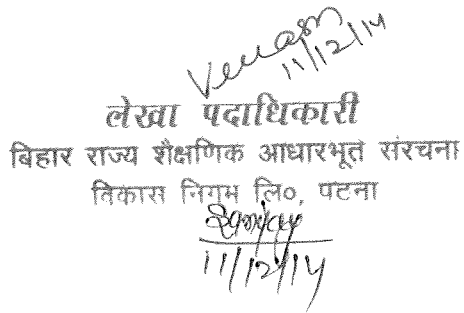 11/12/14
लेखा पदाधिकारी
बिहार राज्य शैक्षणिक आधारभूत संरचना
विकास निगम लि०, पटना
11/12/14